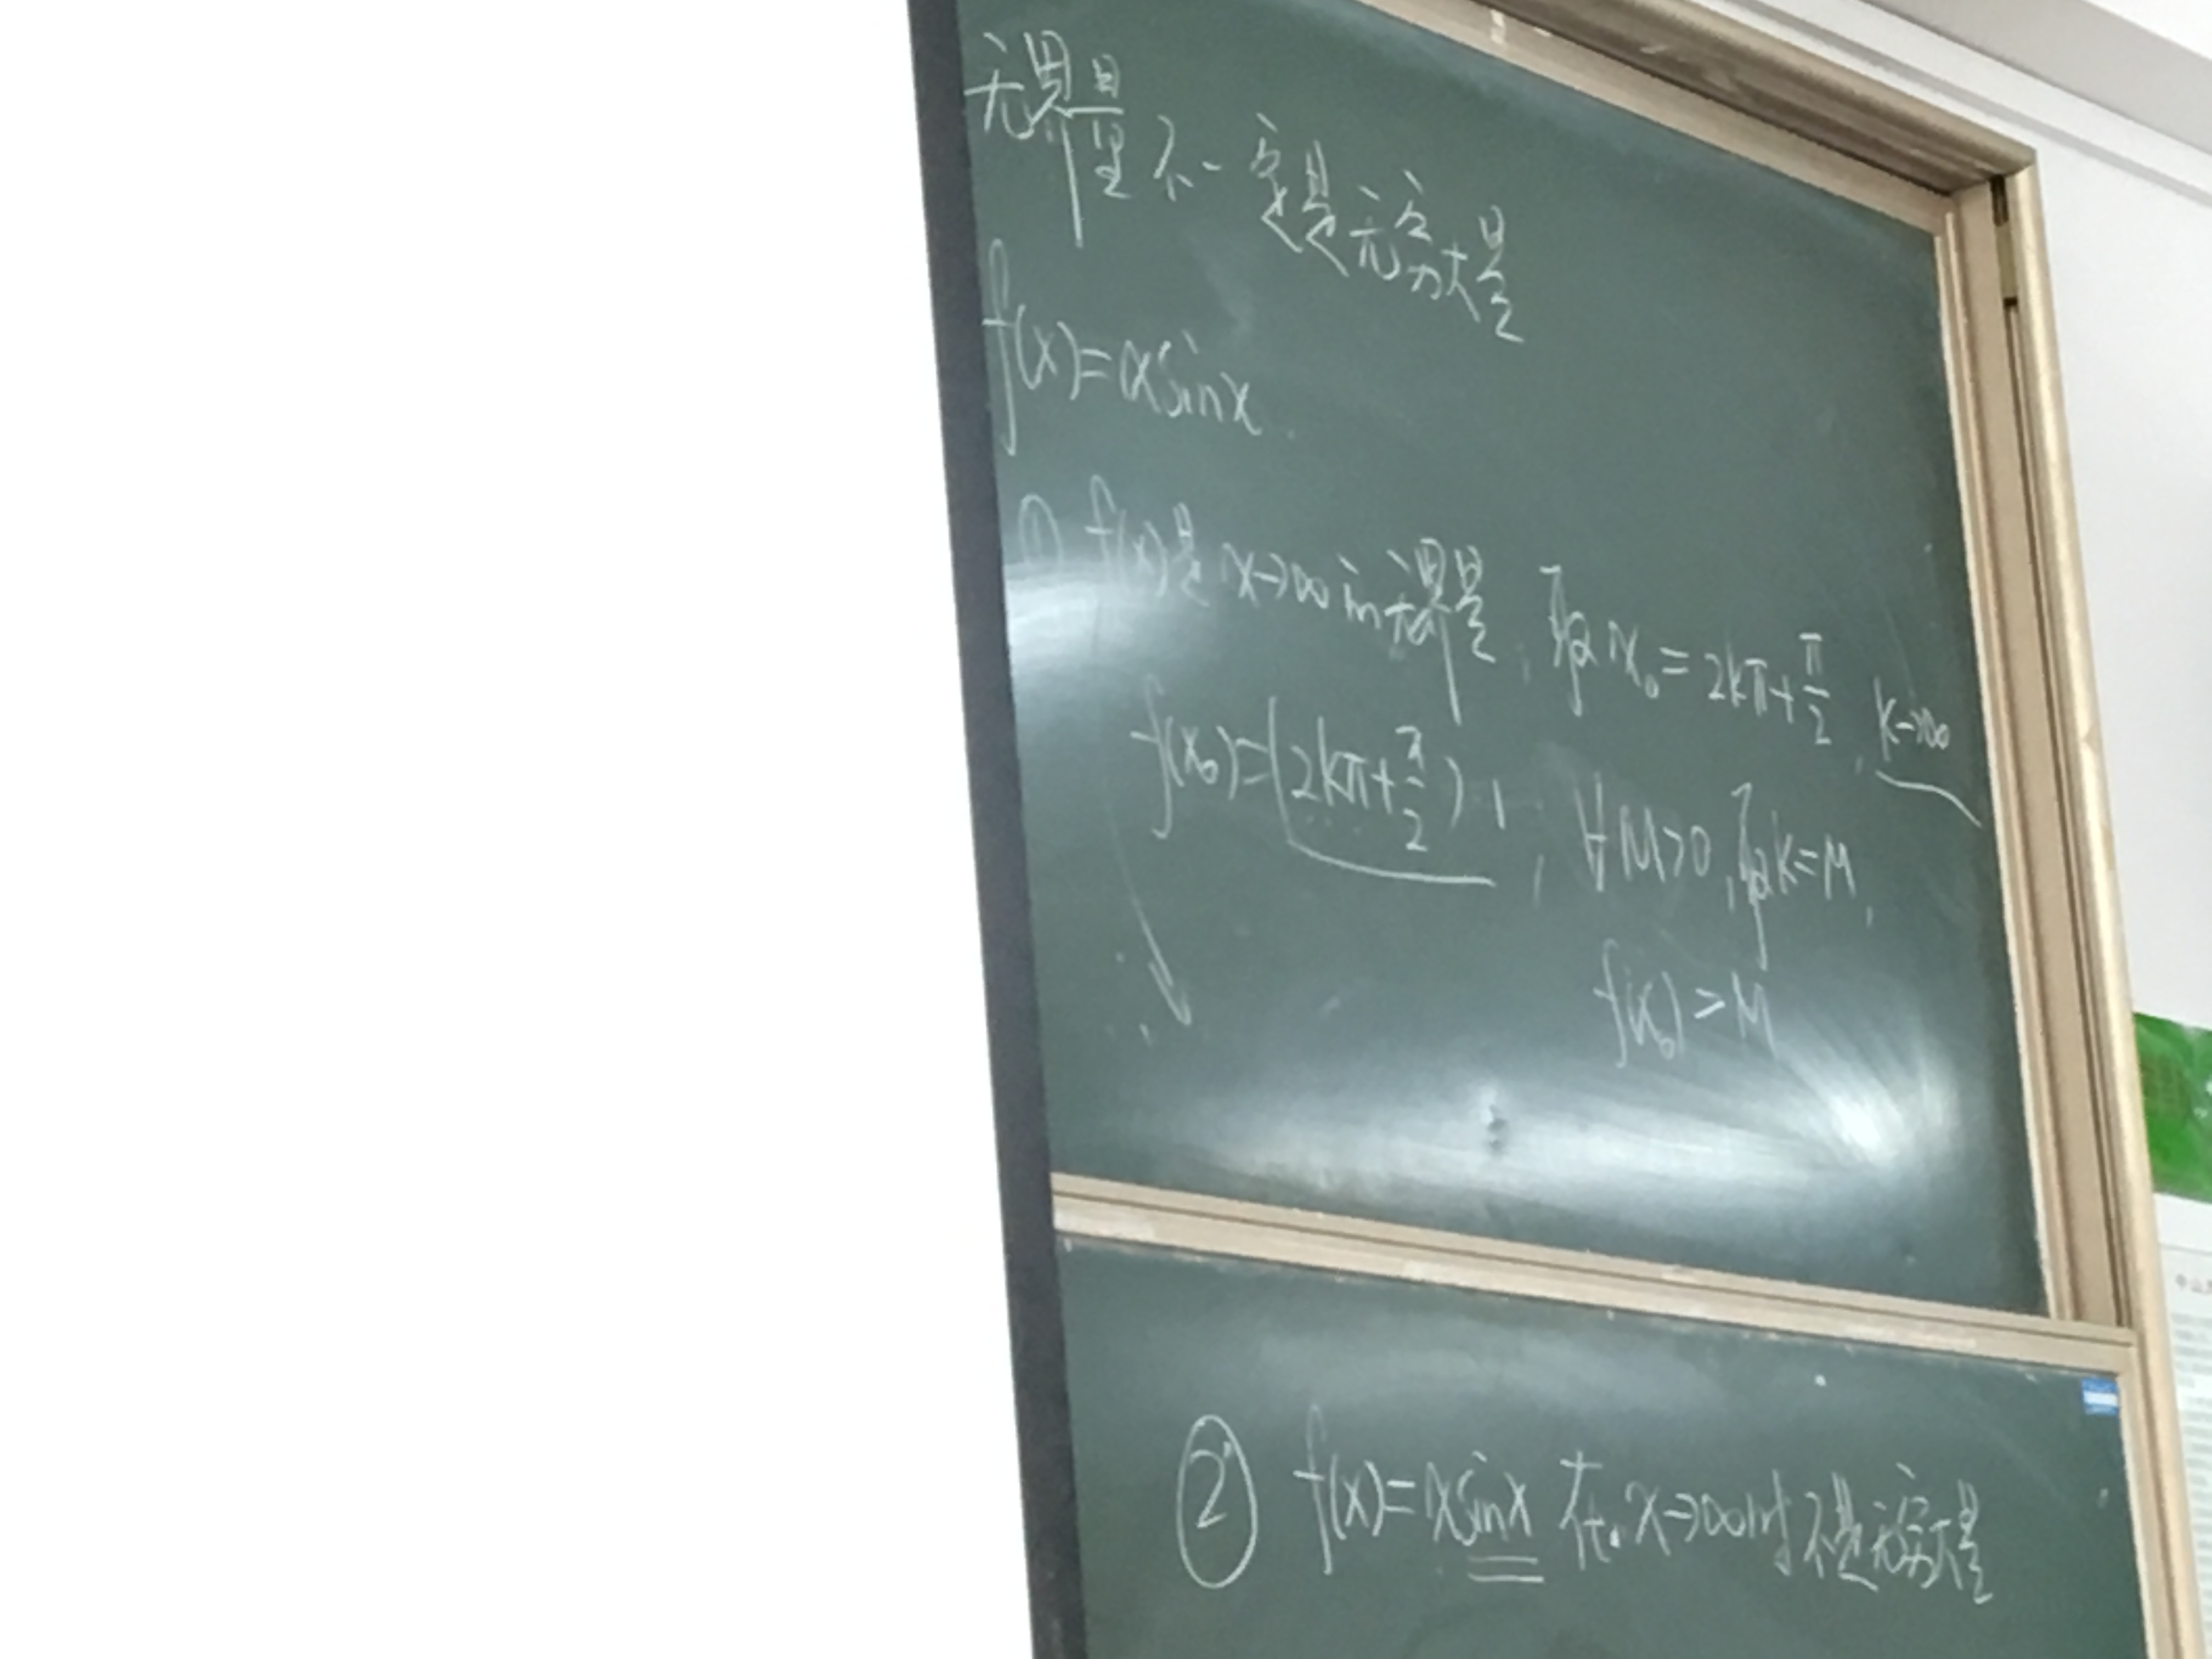 无界量不一定是无穷大量
f(x)=xsinx.
① f(x)是x→∞的无界量, 取x₀=2kπ+π/2, k→∞
f(x₀)=(2kπ+π/2)·1, ∀M>0, 取k=M,
f(x₀)>M
② f(x)=xsinx 在x→∞时不是无穷大量